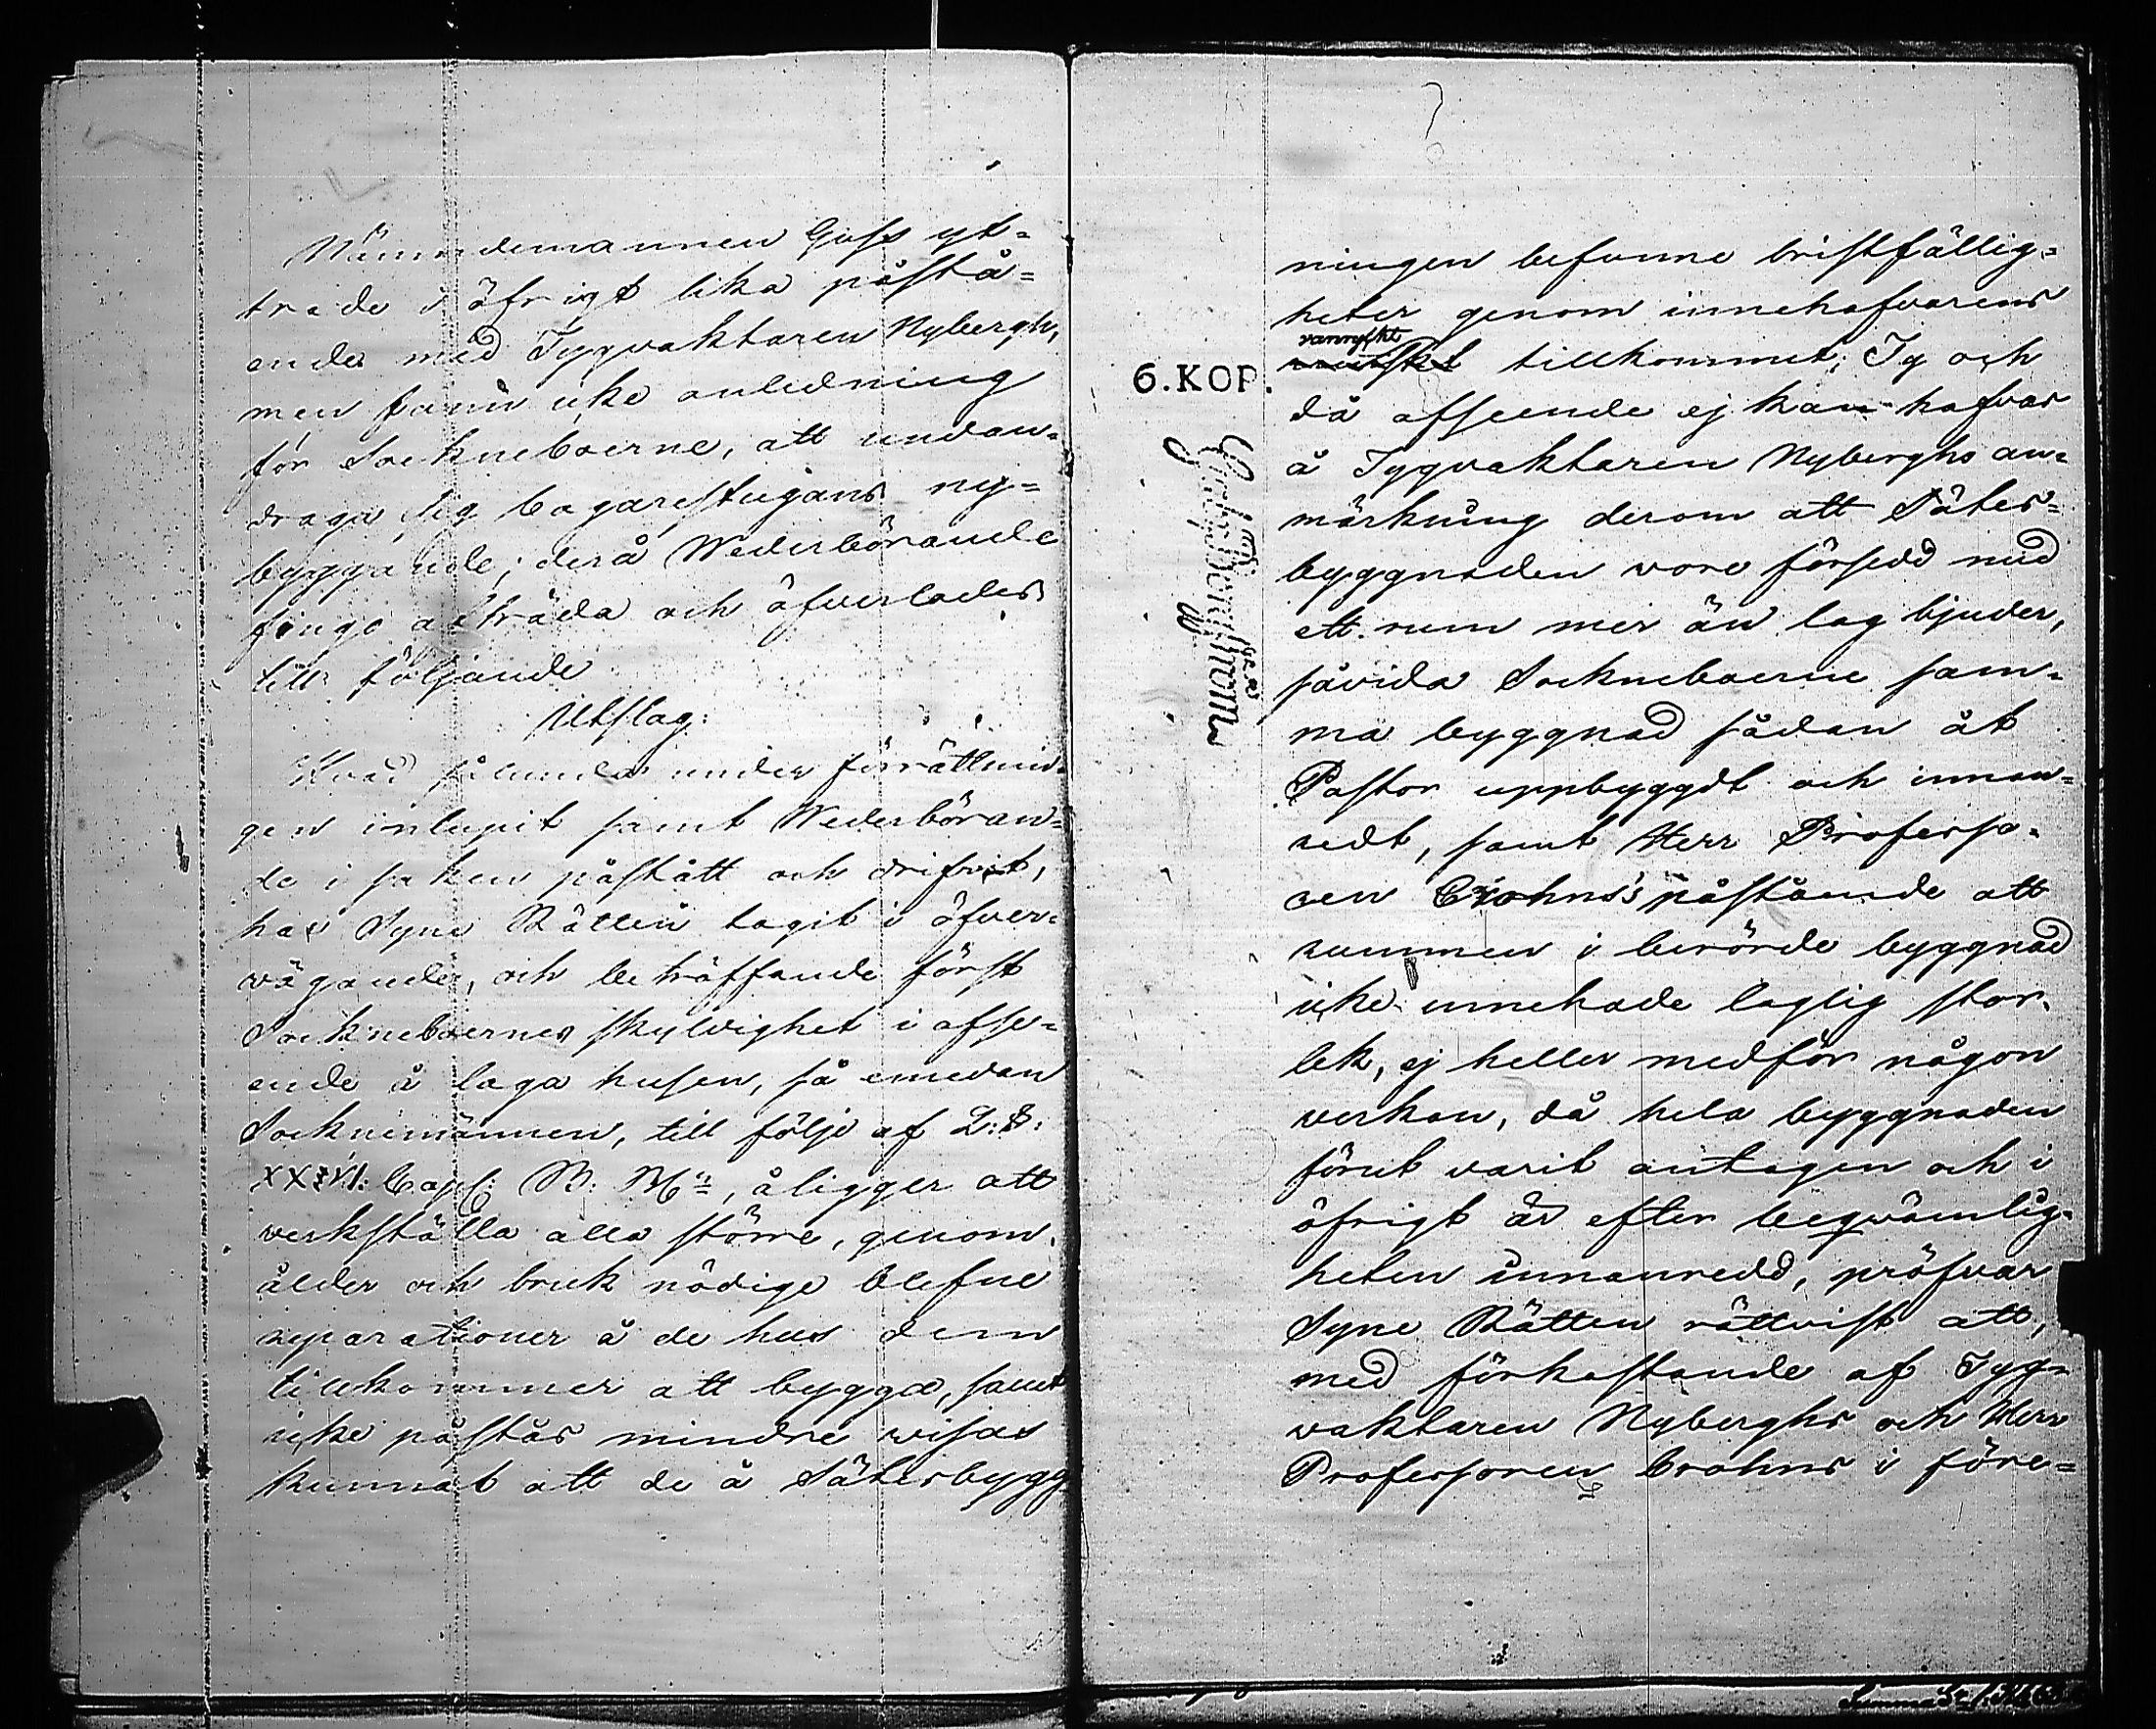 Nämndemannen Guss yt-
trade i öfrigt lika påstå-
ende med Tygvaktaren Nybergh,
men fann icke anledning
för Sockneboerne, att undan-
draga sig bagarestugans ny-
byggande; derå Wederbörande
fingo afträda och öfverlades
till följande
Utslag:
Hvad sålunda under förrättnin-
gen inlupit samt Wederböran-
de i saken påstått och drifvit,
har Syne Rätten tagit i öfver-
vägande, och beträffande först
Sockneboernes skyldighet i afse-
ende å laga husen, så emedan
Socknemännen, till följe af 2:§:
XXVI: Cap: B: B:, åligger att
verkställa alla större, genom
ålder och bruk nödige blefne
reparationer å de hus dem
tillkommer att bygga, samt
icke påstås mindre visas
kunnat att de å Sätesbygg
ningen befunne bristfällig-
heter genom innehafvarens
vanrykt
tillkommit; Ty och
6. KOP.
då afseende ej kan hafvas
å Tygvaktaren Nyberghs an-
märkning derom att Sätes-
byggnaden vore försedd med
ett rum mer än lag bjuder,
såvida Sockneboerne sam-
ma byggnad sådan åt
Pastor uppbyggdt och innan-
redt, samt Herr Professo-
ren Crohns's påstående att
rummen i berörde byggnad
icke innehade laglig stor-
lek, ej heller medför någon
verkan, då hela byggnaden
förut varit antagen och i
öfrigt är efter beqvämlig-
heten innanredd, pröfvar
Syne Rätten rättvist att,
med förkastande af Tyg-
vaktaren Nyberghs och Herr
Professoren Crohns i före-